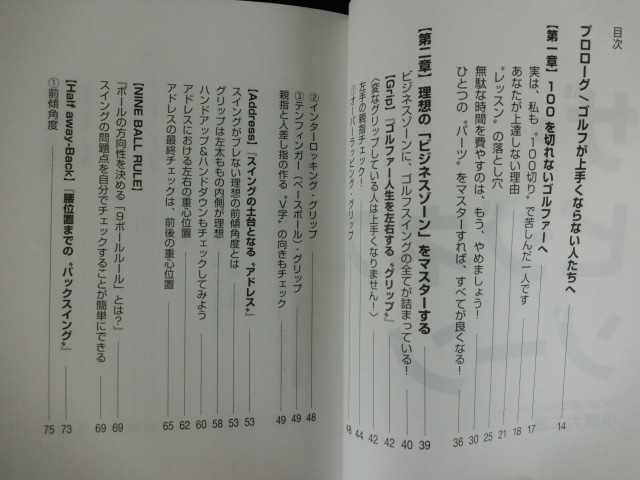 目次
プロローグ/ゴルフが上手くならない人たちへ 14
【第一章】100を切れないゴルファーへ 17
実は、私も“100切り”で苦しんだ一人です 18
あなたが上達しない理由 21
“レッスン”の落とし穴 25
無駄な時間を費やすのは、もう、やめましょう! 30
ひとつの“パーツ”をマスターすれば、すべてが良くなる! 36
【第二章】理想の「ビジネスゾーン」をマスターする 39
ビジネスゾーンに、ゴルフスイングの全てが詰まっている! 40
【Grip】『ゴルファー人生を左右する“グリップ”』 42
〈変なグリップしている人は上手くなりません!〉 42
左手の親指チェック! 44
①オーバーラッピング・グリップ 48
②インターロッキング・グリップ 48
③テンフィンガー(ベースボール)・グリップ 49
親指と人差し指の作る“V字”の向きもチェック 49
【Address】『スイングの土台となる“アドレス”』 53
スイングがブレない理想の前傾角度とは 53
グリップは左太ももの内側が理想 58
ハンドアップ&ハンドダウンもチェックしてみよう 60
アドレスにおける左右の重心位置 62
アドレスの最終チェックは、前後の重心位置 65
【NINE BALL RULE】
『ボールの方向性を決める「9ボールルール」とは?』 69
スイングの問題点を自分でチェックすることが簡単にできる 69
【Half away-Back】『腰位置までの“バックスイング”』 73
①前傾角度 75